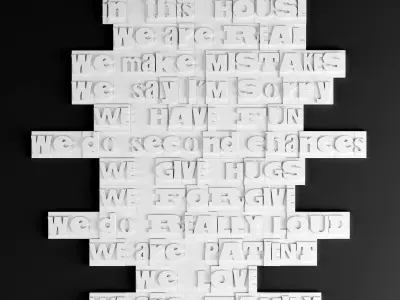 in this HOUSE
we are REAL
we make MISTAKES
we say I'M SORRY
WE HAVE FUN
we do second chances
WE GIVE HUGS
WE FORGIVE
we do REALLY LOUD
we are PATIENT
we LOVE
we are FAMILY